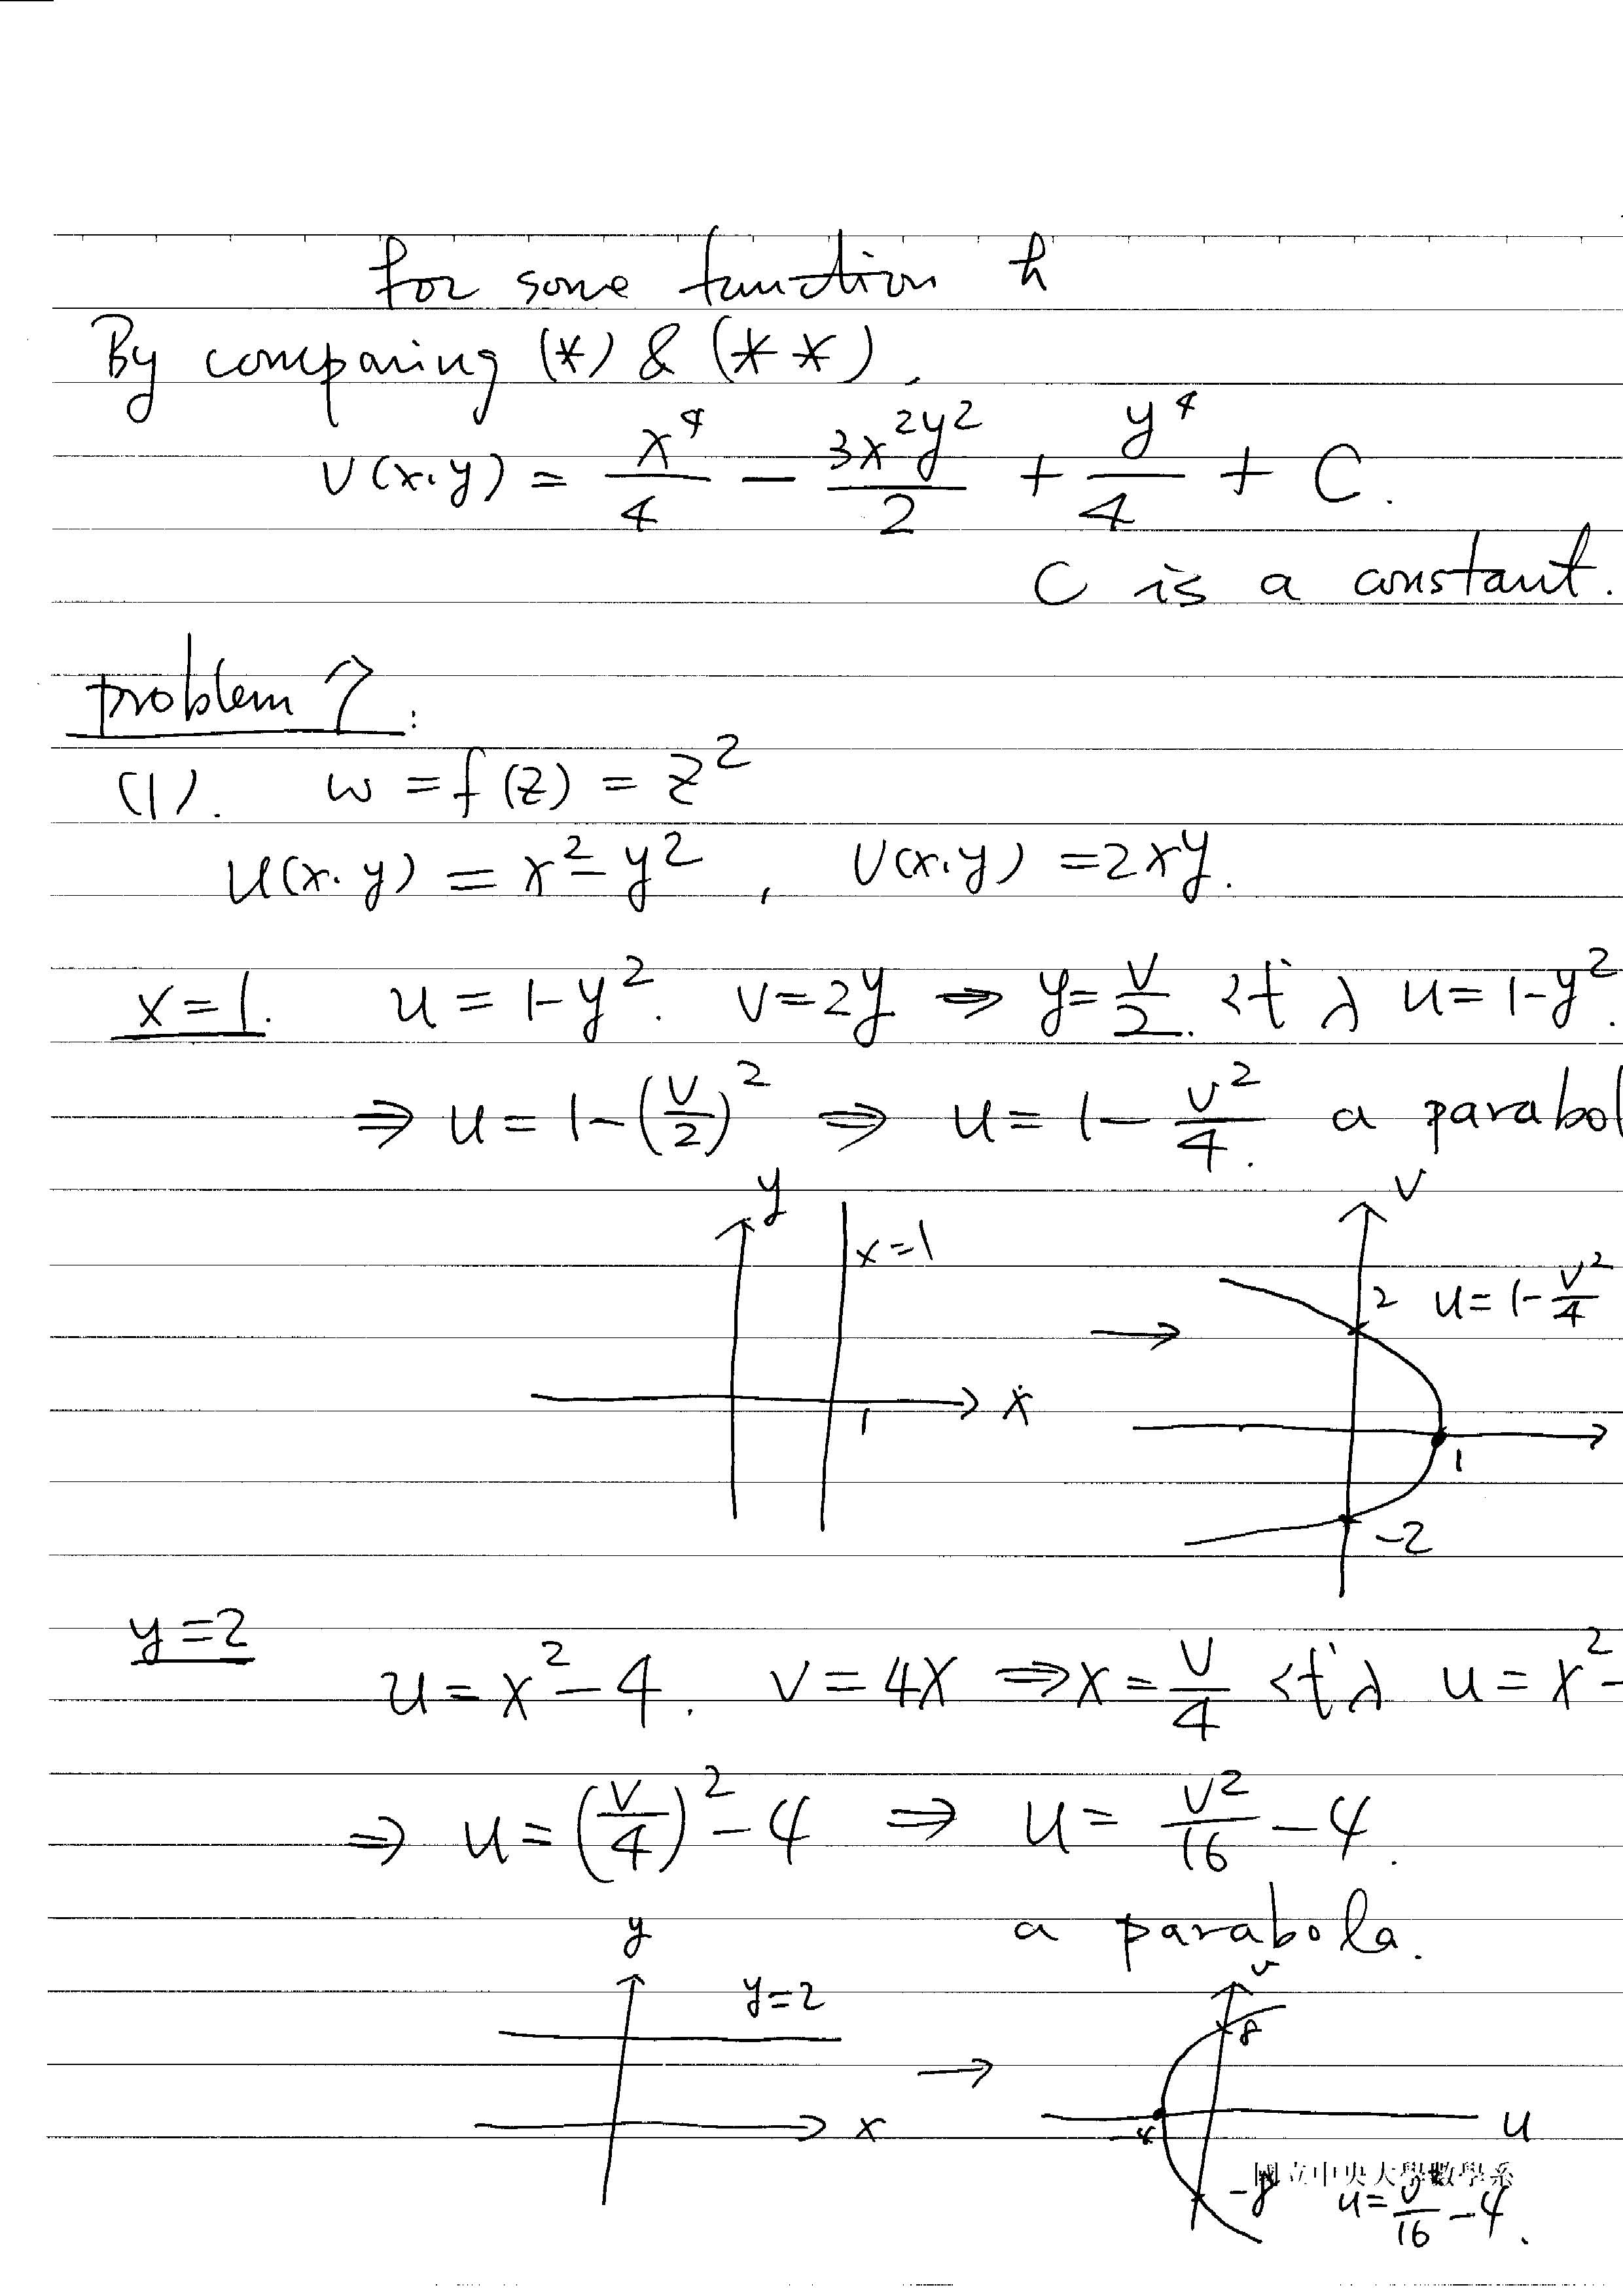 for some function h
By comparing (*) & (**),
v(x,y) = x⁴/4 - 3x²y²/2 + y⁴/4 + C.
C is a constant.
problem 7:
(1). w = f(z) = z²
u(x,y) = x² - y², v(x,y) = 2xy.
x=1. u = 1-y². v=2y ⇒ y=v/2. 代入 u=1-y².
⇒ u = 1-(v/2)² ⇒ u = 1 - v²/4. a parabol
y
x=1
x
1
v
2 u=1-v²/4
1
-2
y=2 u = x²-4. v=4x ⇒ x=v/4 代入 u=x²-
⇒ u=(v/4)²-4 ⇒ u = v²/16 - 4.
a parabola.
y
y=2
x
v
8
u
-8
國立中央大學數學系